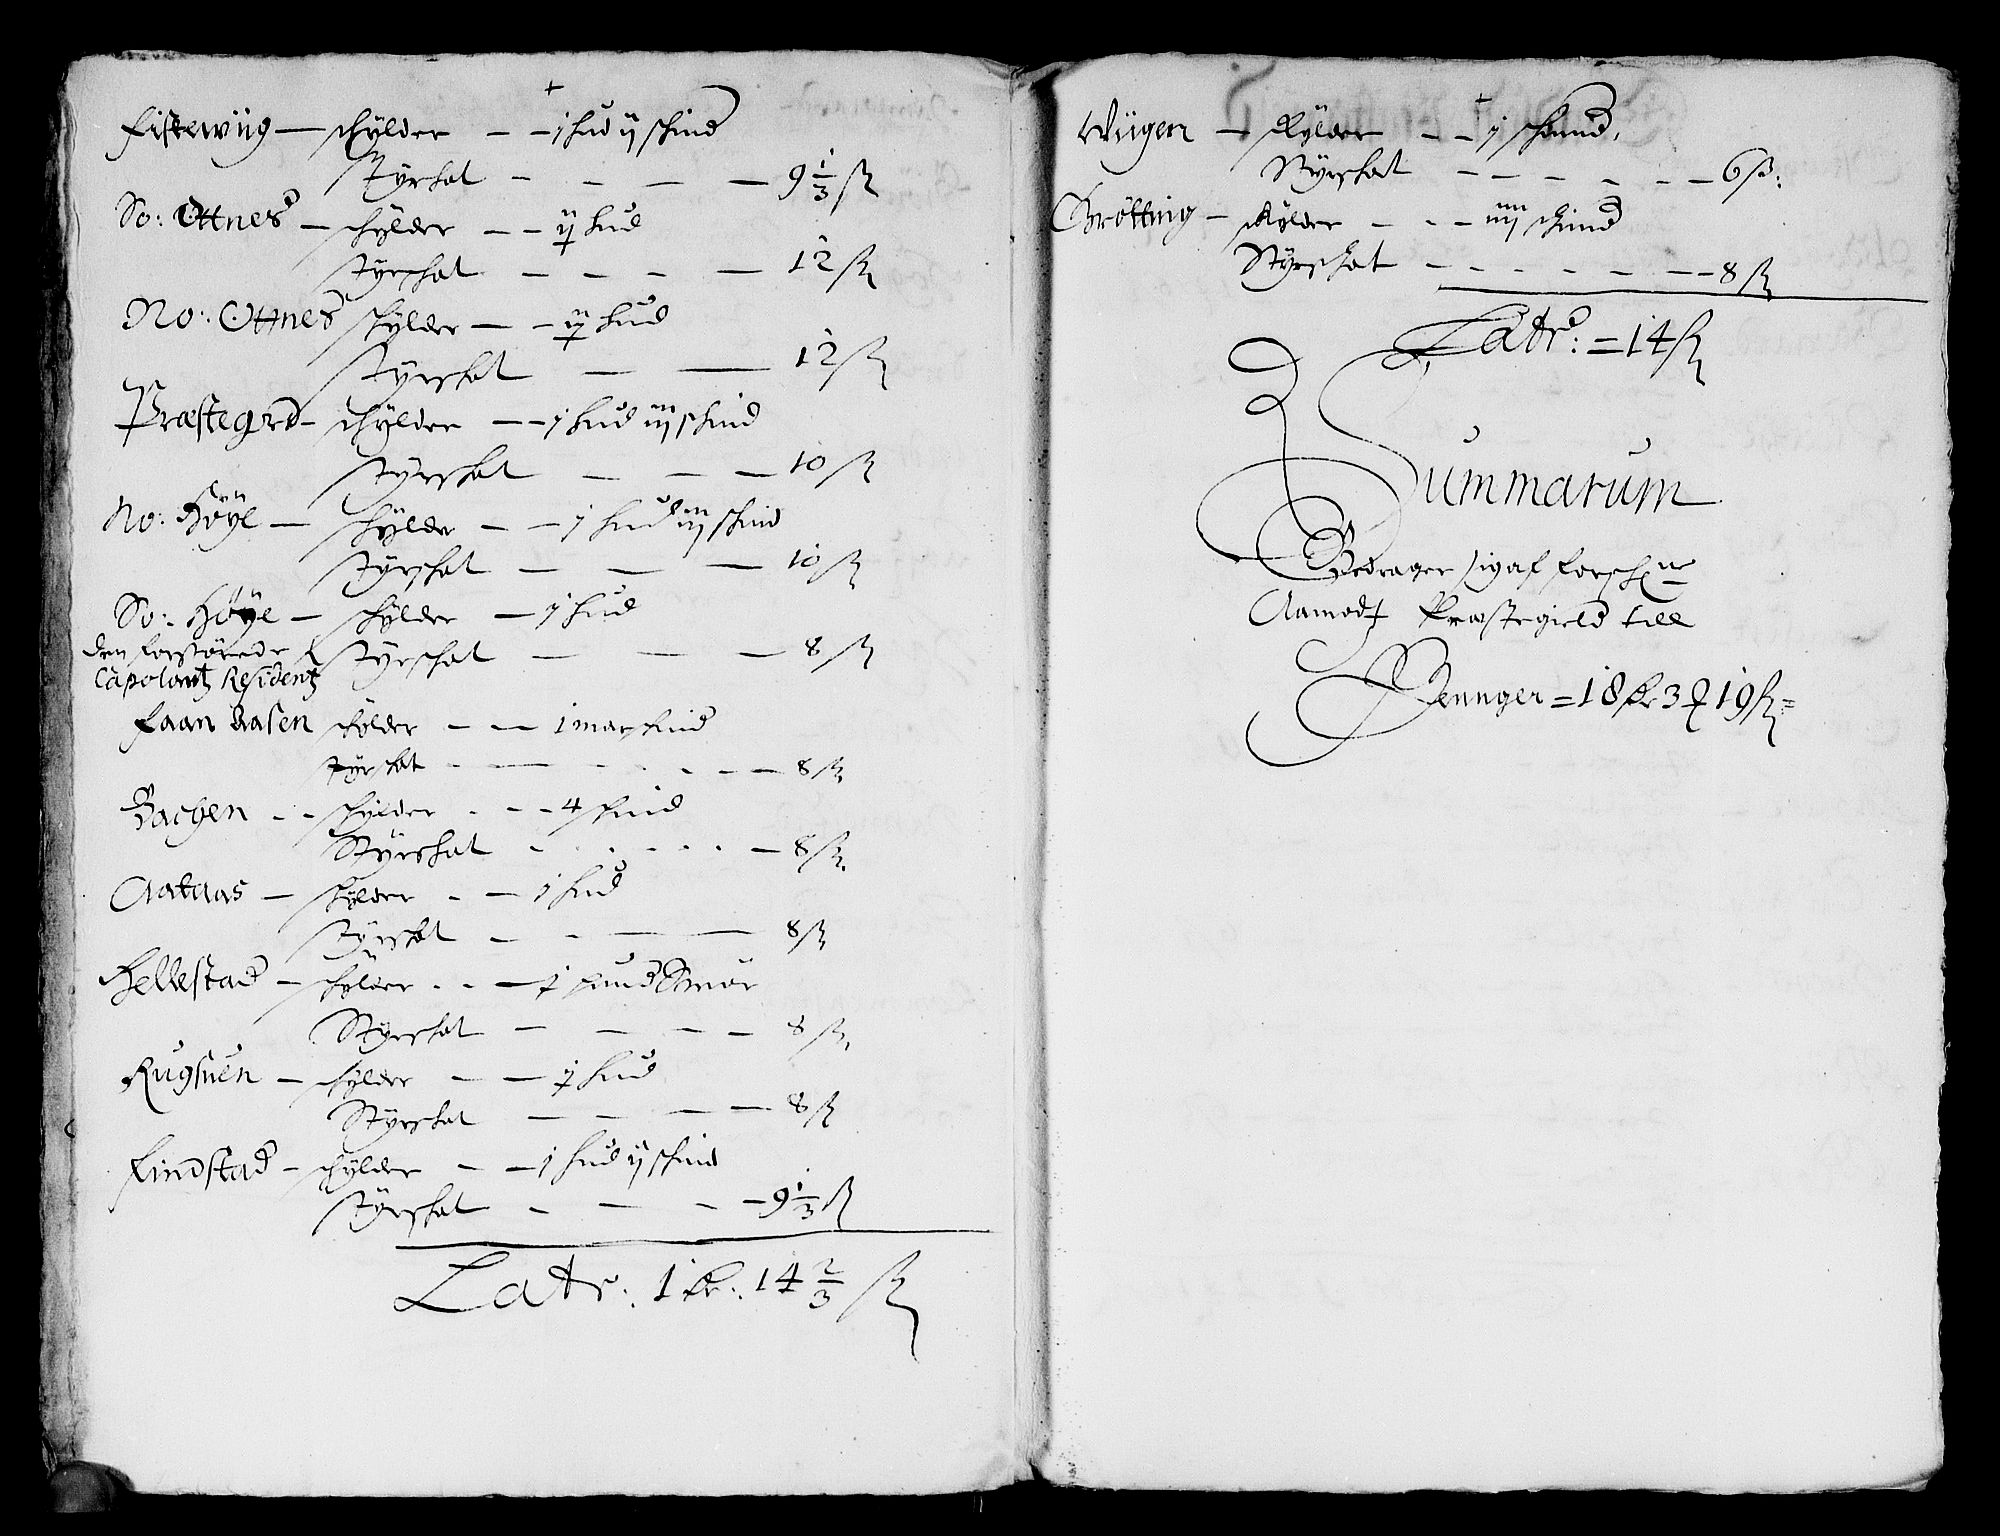 +
Fiskewiig — schylder — j hud ij schind
Styrschat — 9 1/3 ß
So: Ottnes — schylder — ij hud
Styrschat — 12 ß
No: Ottnes schylder — ij hud
Styrschat — 12 ß
Præstegrd — schylder — j hud iij schind
Styrschat — 10 ß
No: Høye — schylder — j hud iij schind
Styrschat — 10 ß
So: Høye — schylder — j hud
den forstørede
Styrschat — 8 ß
Capolantz Residentz
Faan Aasen schylder — 1 mar schind
Styrschat — 8 ß
Bachen — schylder — 4 schind
Styrschat — 8 ß
Aataas — schylder — j hud
Styrschat — 8 ß
Hellestad — schylder — j pund Smør
Styrschat — 8 ß
Rugsuen — schylder — j hud
Styrschat — 8 ß
Findstad — schylder — j hud ij schind
Styrschat — 9 1/3 ß
Latr: 1 dr: 14 2/3 ß
+
Wiigen — schylder — j schind
Styrschat — 6 ß:
Brötting — schylder — iiij schind
Styrschat — 8 ß
Latr: = 14 ß
Summarum
Bedrager sig af forschne
Aamodt Præstegield till
Pennger = 18 dr 3 ƒ 19 ß =